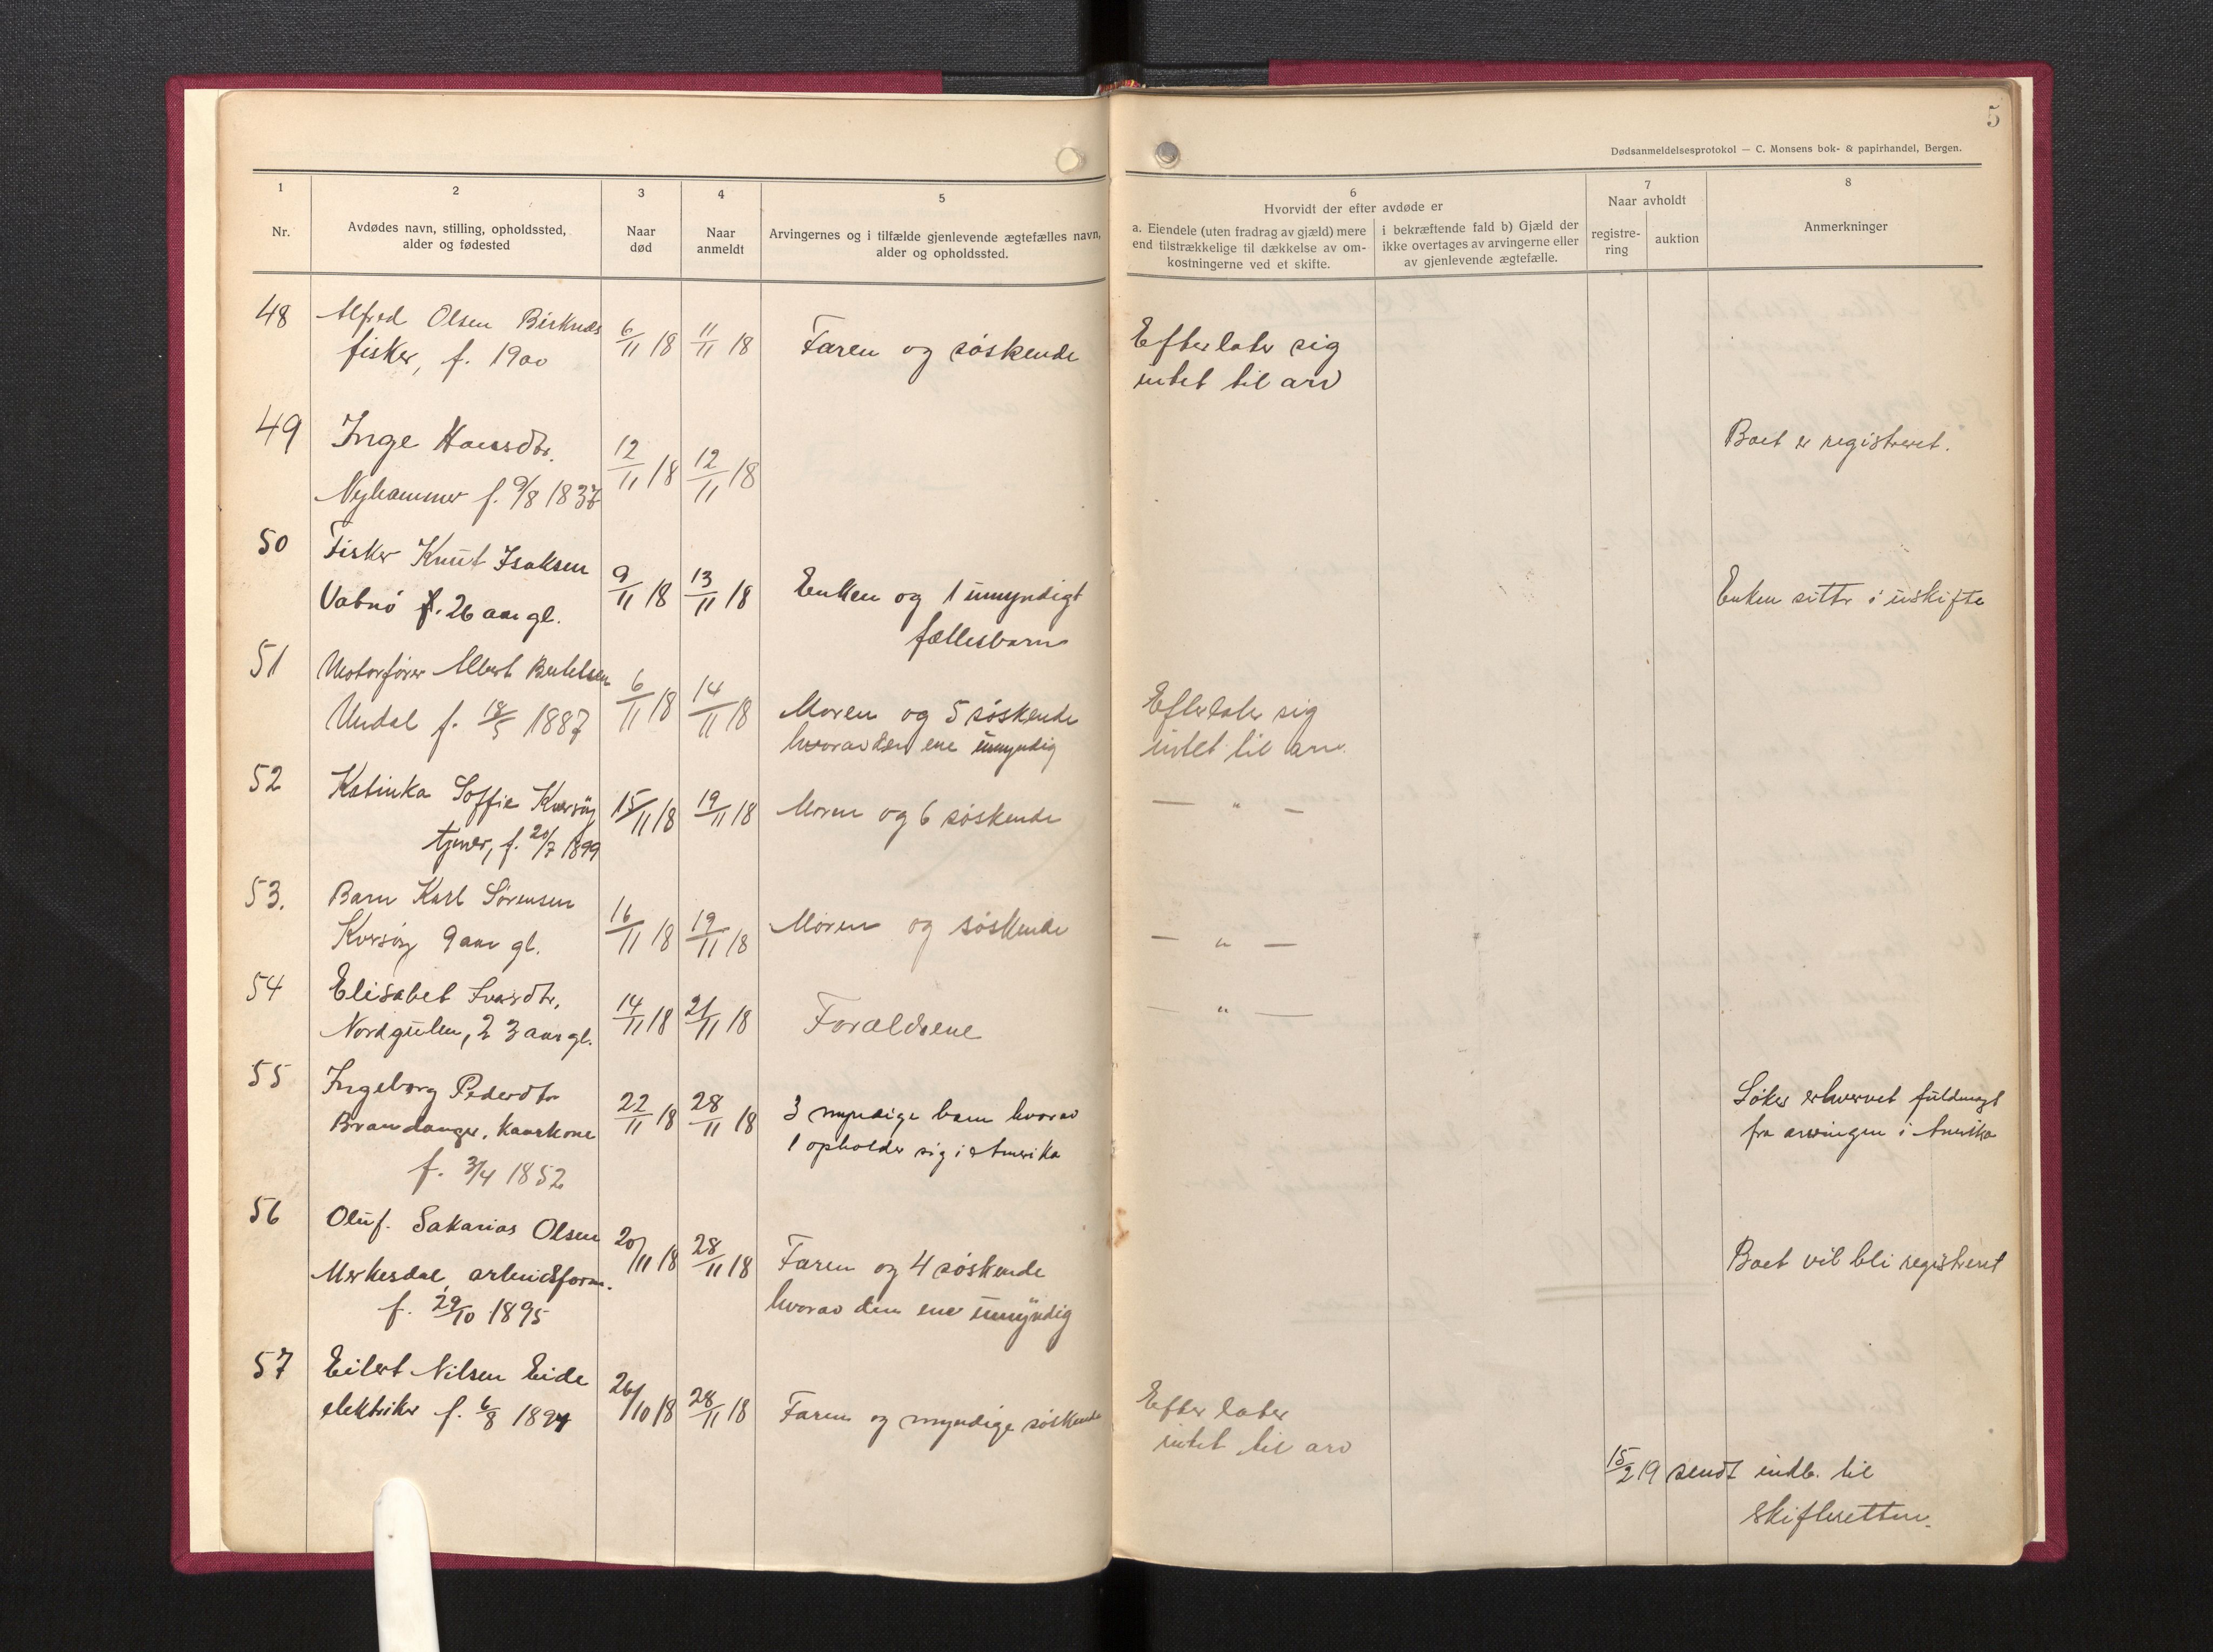 5
Dødsanmeldelsesprotokol — C. Monsens bok- & papirhandel, Bergen.
1
Nr.
2
Avdødes navn, stilling, opholdssted,
alder og fødested
3
Naar
død
4
Naar
anmeldt
5
Arvingernes og i tilfælde gjenlevende ægtefælles navn,
alder og opholdssted.
6
Hvorvidt der efter avdøde er
a. Eiendele (uten fradrag av gjæld) mere
end tilstrækkelige til dækkelse av om-
kostningerne ved et skifte.
i bekræftende fald b) Gjæld der
ikke overtages av arvingerne eller
av gjenlevende ægtefælle.
7
Naar avholdt
registre-
ring
auktion
8
Anmerkninger
48
Alfred Olsen Birknes
fisker, f. 1900
6/11 18
11/11 18
Faren og søskende
Efterlater sig
intet til arv
49
Inge Hansdtr.
Nyhammer f. 9/8 1837
12/11 18
12/11 18
Boet er registreret.
50
Fisker Knut Isaksen
Vabnø f. 26 aar gl.
9/11 18
13/11 18
Enken og 1 umyndigt
fællesbarn
Enken sitter i uskifte
51
Motorfører Albert Bertelsen
Undal f. 18/5 1887
6/11 18
14/11 18
Moren og 5 søskende
hvorav den ene umyndig
Efterlater sig
intet til arv.
52
Katinka Soffie Kversøy
tjener, f. 20/7 1899
15/11 18
19/11 18
Moren og 6 søskende
— " —
53.
Barn Karl Sørensen
Kversøy 9 aar gl.
16/11 18
19/11 18
Moren og søskende
— " —
54
Elisabet Ivarsdtr.
Nordgulen, 23 aar gl.
14/11 18
21/11 18
Forældrene
— " —
55
Ingeborg Pedersdtr
Brandanger, kaarkone
f. 3/4 1852
22/11 18
28/11 18
3 myndige barn hvorav
1 opholder sig i Amerika
Søker erhvervet fuldmagt
fra arvingen i Amerika
56
Oluf. Sakarias Olsen
Merkesdal, arbeidsform.
f. 29/10 1895
20/11 18
28/11 18
Faren og 4 søskende
hvorav den ene umyndig
Boet vil bli registreret
57
Eilert Nilsen Eide
elektriker f. 6/8 1894
26/10 18
28/11 18
Faren og myndige søskende
Efterlater
intet til arv
15/2 19 sendt indb. til
skifteretten.